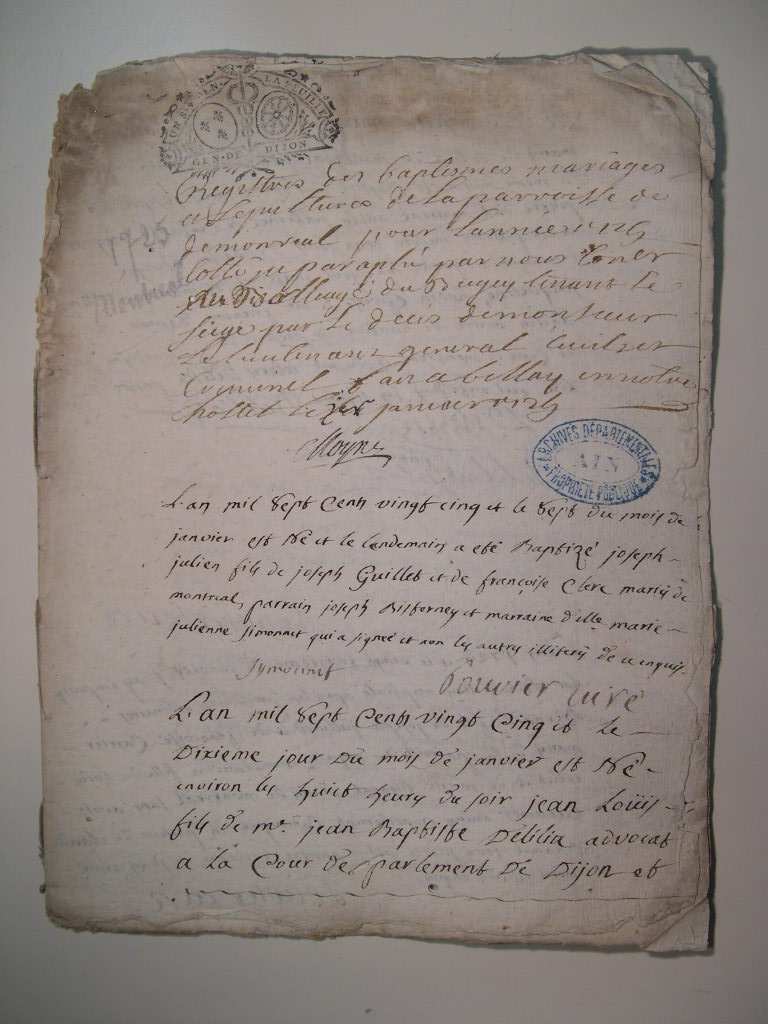 GEN. DE DIJON
Registres des baptismes mariages
et sepultures de la parroisse de
demontreal pour lannee
par nous
du Bugey tenant le
siege par le deces de monsieur
le lieutenant general
Criminel a bellay en nostre
hostel le janvier
1725
Montreal
Moyne
ARCHIVES DÉPARTEMENTALES
AIN
PROPRIÉTÉ PUBLIQUE
L'an mil sept Cents vingt cinq et le sept du mois de
janvier est né et le lendemain a eté Baptizé joseph
julien fils de joseph Guillet et de françoise Clerc mariés de
montreal, parrain joseph et marraine d'elle marie
julienne simonnet qui a signée et non les autres illiterés de ce enquis.
Symonnet
Bouvier curé
L'an mil sept Cents vingt Cinq et le
Dixieme jour Du mois de janvier est Né
environ les huict heures du soir jean Loüis
fils de mr. jean Baptiste Delilia advocat
a la Cour de parlement De Dijon et